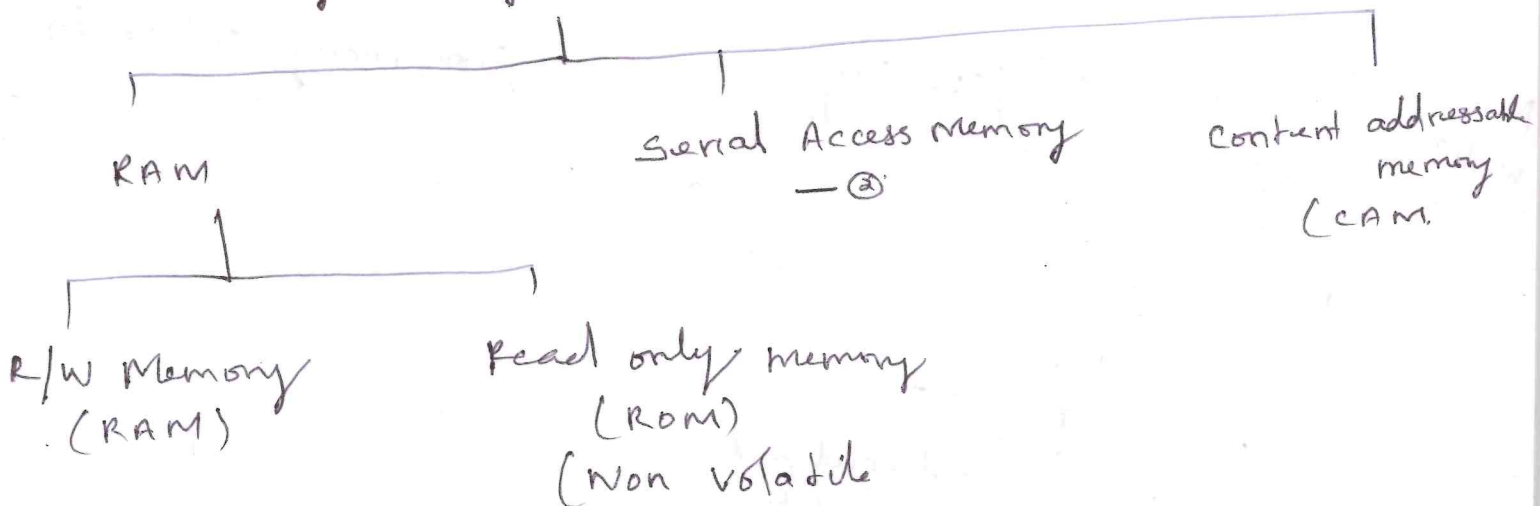 RAM
Serial Access Memory
— ②
Content addressable
memory
(CAM.
R/W Memory
(RAM)
Read only memory
(ROM)
(Non volatile